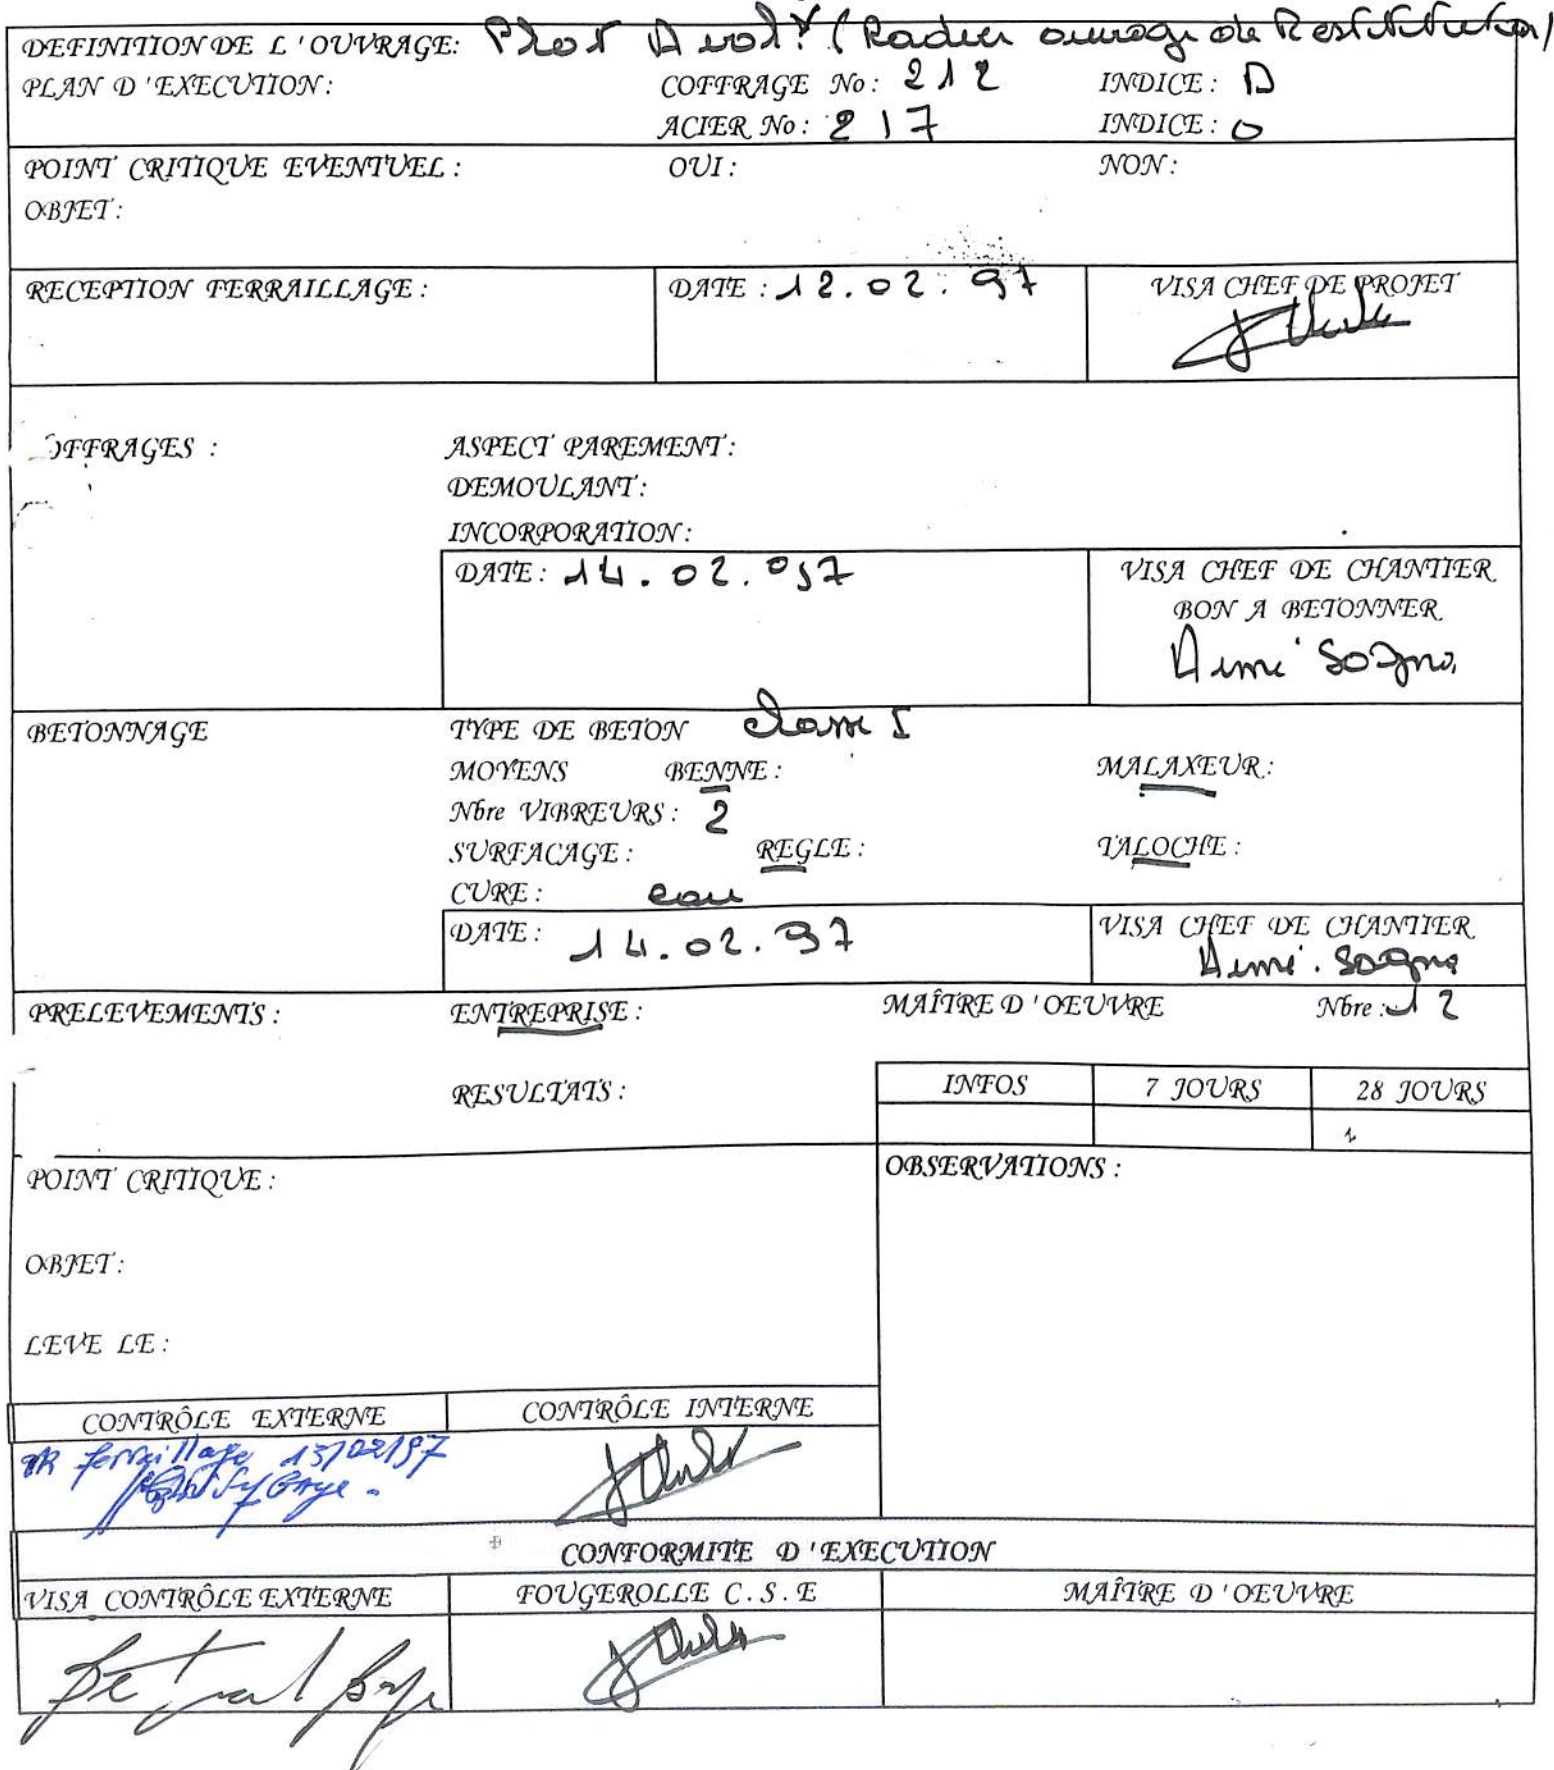 DEFINITION DE L'OUVRAGE: Plot Aval (Radier ouvrage de Restitution)
PLAN D'EXECUTION: COFFRAGE No: 212 INDICE: D
ACIER No: 217 INDICE: O
POINT CRITIQUE EVENTUEL: OUI: NON:
OBJET:
RECEPTION FERRAILLAGE: DATE: 12.02.97 VISA CHEF DE PROJET
OFFRAGES : ASPECT PAREMENT:
DEMOULANT:
INCORPORATION:
DATE: 14.02.97 VISA CHEF DE CHANTIER
BON A BETONNER
Aimé Sogna
BETONNAGE TYPE DE BETON classe I
MOYENS BENNE: MALAXEUR:
Nbre VIBREURS: 2
SURFACAGE: REGLE: TALOCHE:
CURE: eau
DATE: 14.02.97 VISA CHEF DE CHANTIER
Aimé. Sogna
PRELEVEMENTS: ENTREPRISE: MAÎTRE D'OEUVRE Nbre: 12
RESULTATS: INFOS 7 JOURS 28 JOURS
POINT CRITIQUE: OBSERVATIONS:
OBJET:
LEVE LE:
CONTRÔLE EXTERNE CONTRÔLE INTERNE
ferraillage 13/02/97
CONFORMITE D'EXECUTION
VISA CONTRÔLE EXTERNE FOUGEROLLE C.S.E MAÎTRE D'OEUVRE